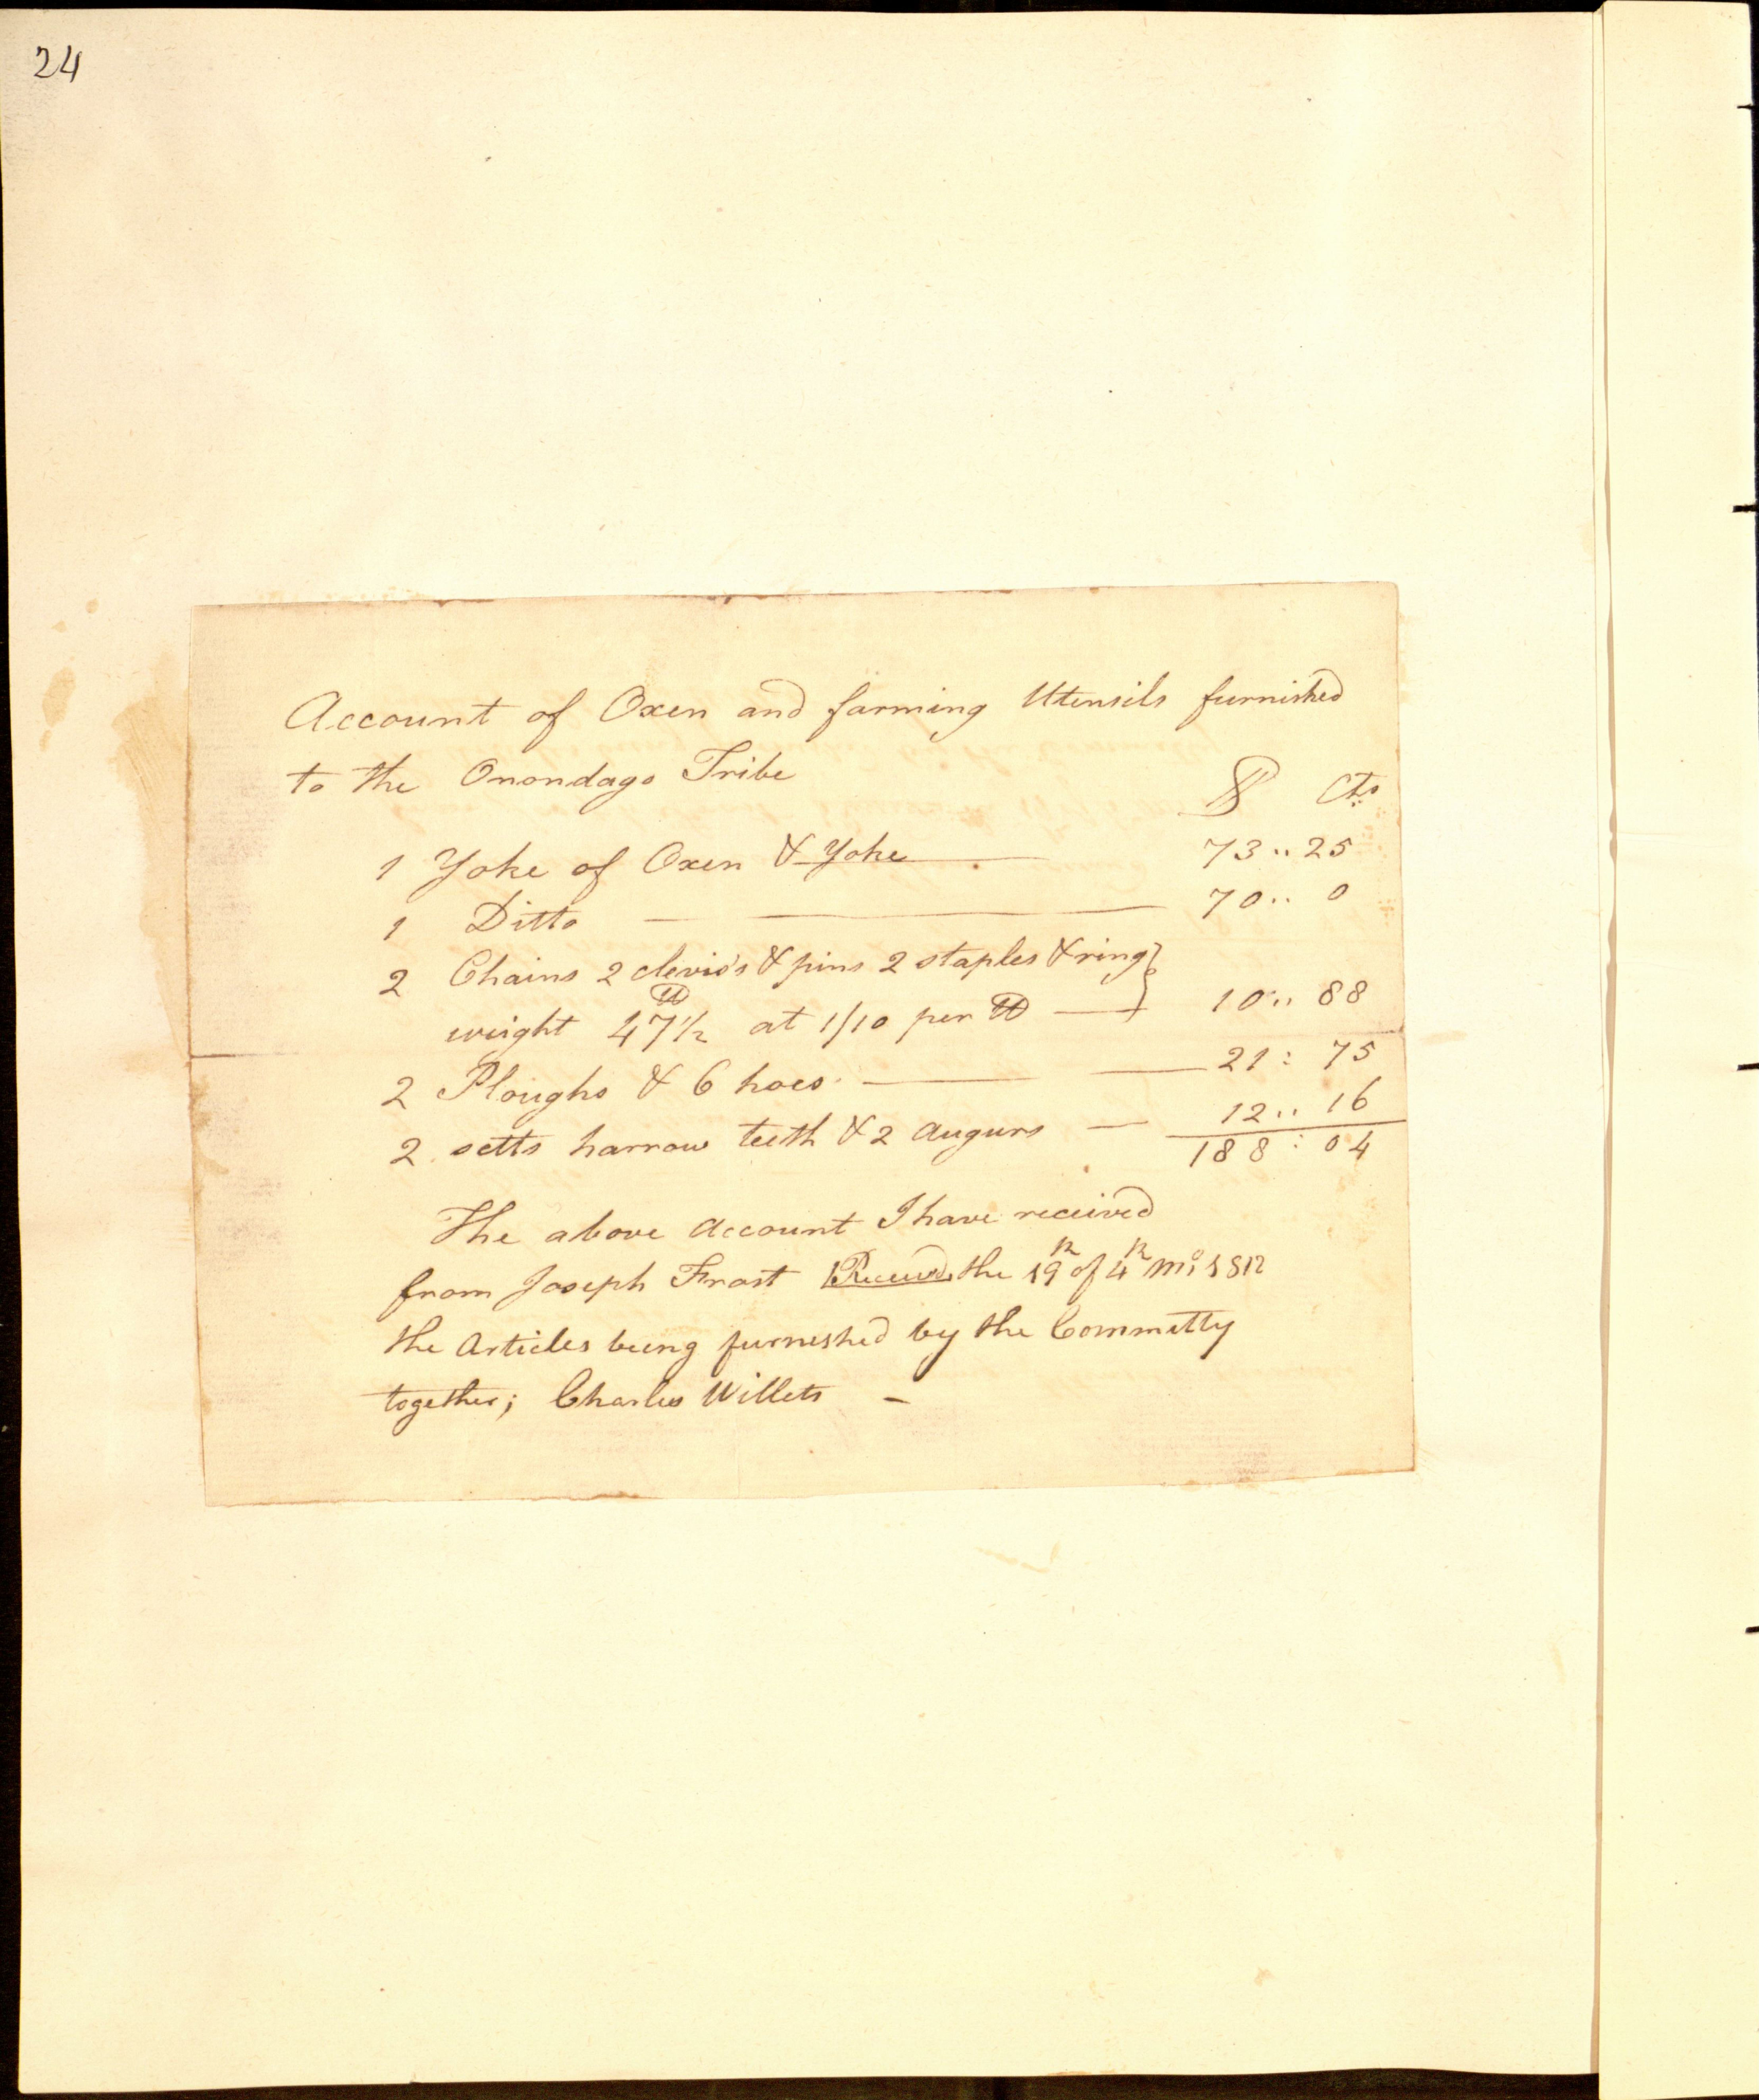 24
Account of Oxen and farming Utensils furnished
to the Onondago Tribe
D Cts
1 Yoke of Oxen & Yoke 73.. 25
1 Ditto — 70.. 0
2 Chains 2 clevis's & pins 2 staples & ring }
weight 47 1/2 lb at 1/10 per lb — 10.. 88
2 Ploughs & 6 hoes — 21: 75
2 setts harrow teeth & 2 augurs — 12.. 16
188: 04
The above account I have received
from Joseph Frost the 19th of 4th mo 1812
the Articles being furneshed by the Committy
together; Charles Willets —